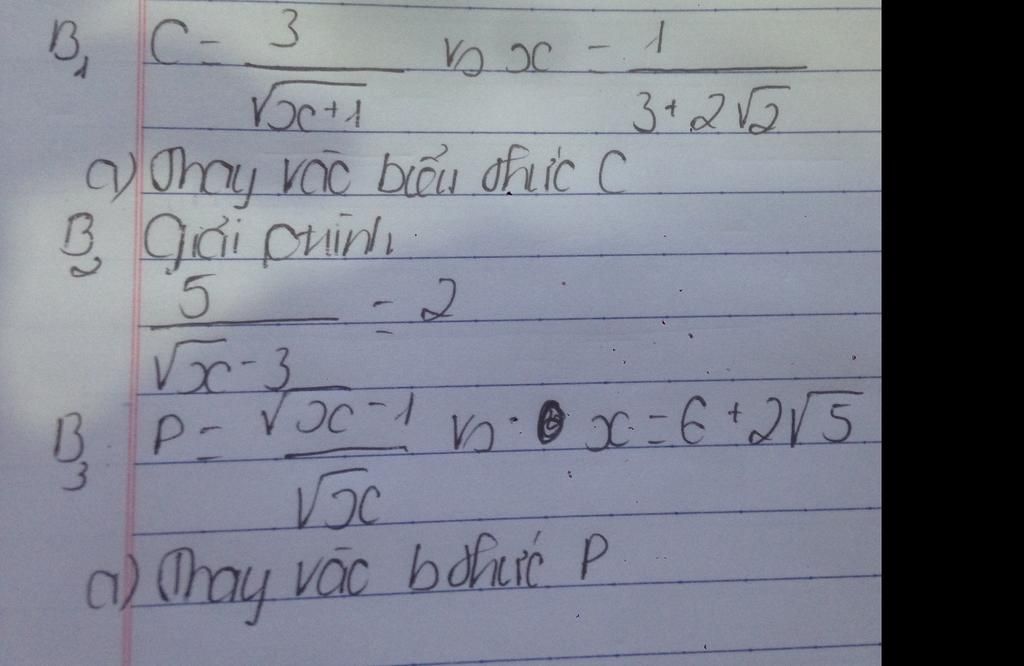 B1 C = 3/√x+1 vs x = 1/3+2√2
a) Thay vào biểu thức C
B2 Giải ptrình
5/√x-3 = 2
B3 P = √x-1/√x vs x = 6+2√5
a) Thay vào bthức P